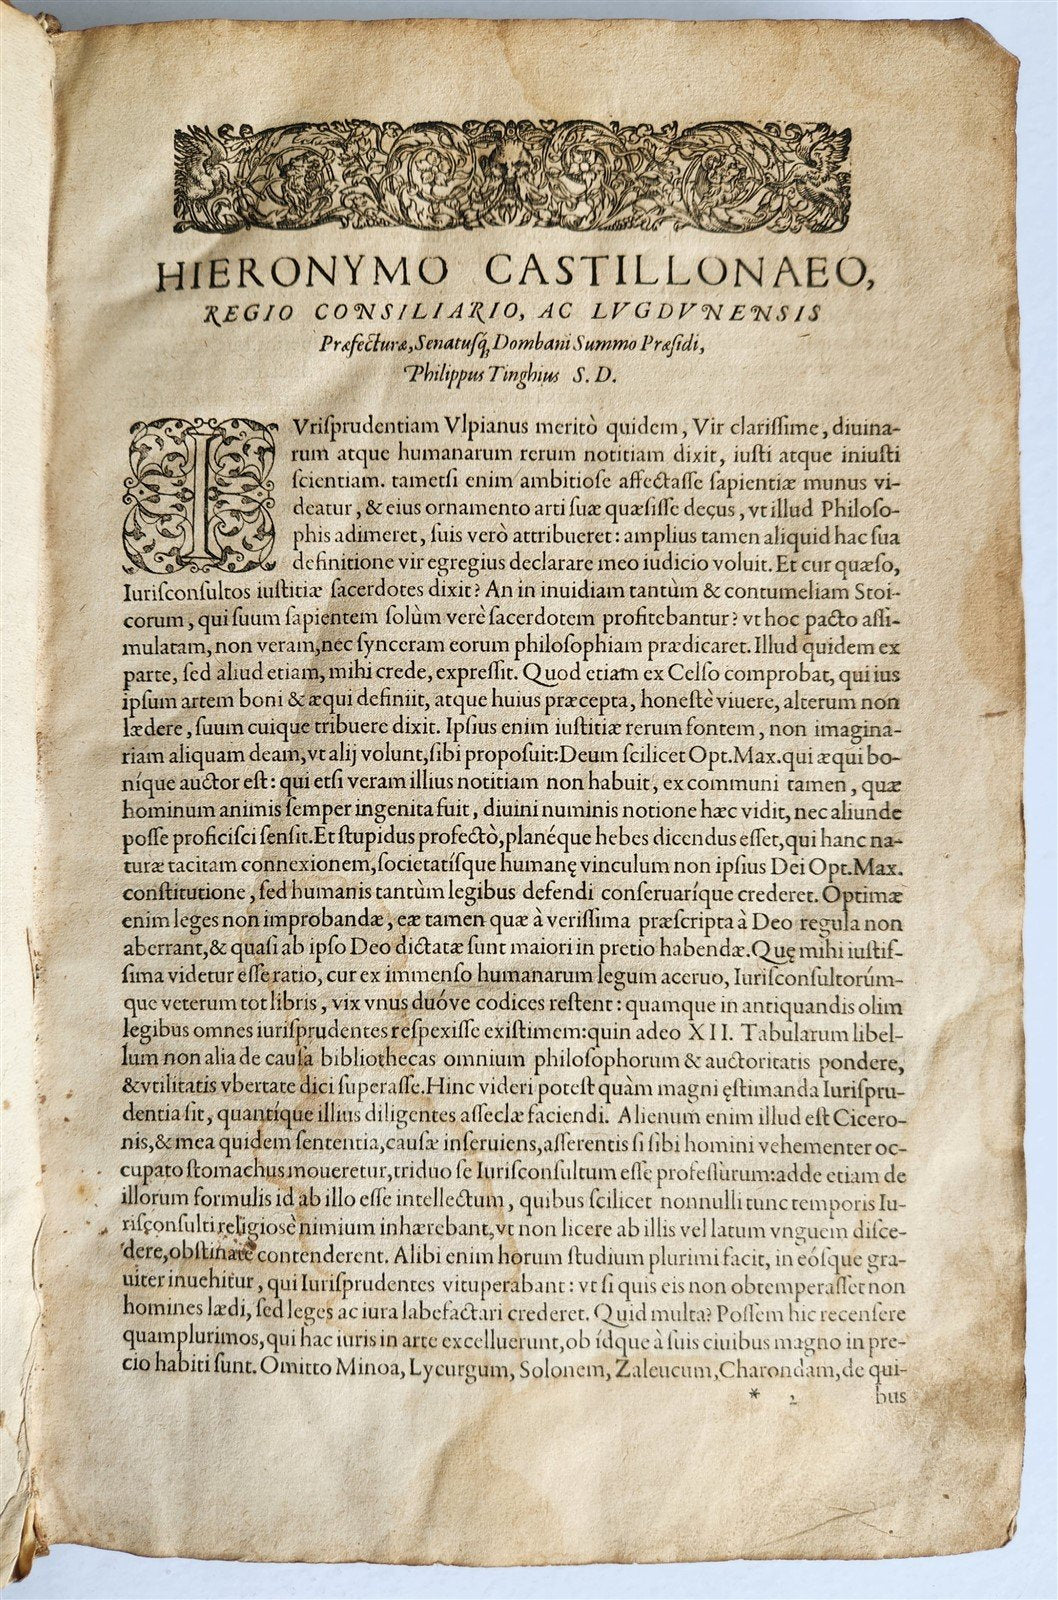 HIERONYMO CASTILLONAEO,
REGIO CONSILIARIO, AC LVGDVNENSIS
Præfecturæ, Senatusq́; Dombani Summo Præsidi,
Philippus Tinghius S. D.
IVrisprudentiam Vlpianus meritò quidem, Vir clarissime, diuina-
rum atque humanarum rerum notitiam dixit, iusti atque iniusti
scientiam. tametsi enim ambitiose affectasse sapientiæ munus vi-
deatur, & eius ornamento arti suæ quæsisse decus, vt illud Philoso-
phis adimeret, suis verò attribueret: amplius tamen aliquid hac sua
definitione vir egregius declarare meo iudicio voluit. Et cur quæso,
Iurisconsultos iustitiæ sacerdotes dixit? An in inuidiam tantùm & contumeliam Stoi-
corum, qui suum sapientem solùm verè sacerdotem profitebantur? vt hoc pacto assi-
mulatam, non veram, nec synceram eorum philosophiam prædicaret. Illud quidem ex
parte, sed aliud etiam, mihi crede, expressit. Quod etiam ex Celso comprobat, qui ius
ipsum artem boni & æqui definiit, atque huius præcepta, honestè viuere, alterum non
lædere, suum cuique tribuere dixit. Ipsius enim iustitiæ rerum fontem, non imagina-
riam aliquam deam, vt alij volunt, sibi proposuit: Deum scilicet Opt. Max. qui æqui bo-
níque auctor est: qui etsi veram illius notitiam non habuit, ex communi tamen, quæ
hominum animis semper ingenita fuit, diuini numinis notione hæc vidit, nec aliunde
posse proficisci sensit. Et stupidus profectò, planéque hebes dicendus esset, qui hanc na-
turæ tacitam connexionem, societatísque humanę vinculum non ipsius Dei Opt. Max.
constitutione, sed humanis tantùm legibus defendi conseruaríque crederet. Optimæ
enim leges non improbandæ, eæ tamen quæ à verissima præscripta à Deo regula non
aberrant, & quasi ab ipso Deo dictatæ sunt maiori in pretio habendæ. Quę mihi iustis-
sima videtur esse ratio, cur ex immenso humanarum legum aceruo, Iurisconsultorúm-
que veterum tot libris, vix vnus duóve codices restent: quamque in antiquandis olim
legibus omnes iurisprudentes respexisse existimem: quin adeo XII. Tabularum libel-
lum non alia de causa bibliothecas omnium philosophorum & auctoritatis pondere,
& vtilitatis vbertate dici superasse. Hinc videri potest quàm magni ęstimanda Iurispru-
dentia sit, quantíque illius diligentes asseclæ faciendi. Alienum enim illud est Cicero-
nis, & mea quidem sententia, causæ inseruiens, asserentis si sibi homini vehementer oc-
cupato stomachus moueretur, triduo se Iurisconsultum esse professurum: adde etiam de
illorum formulis id ab illo esse intellectum, quibus scilicet nonnulli tunc temporis Iu-
risconsulti religiosè nimium inhærebant, vt non licere ab illis vel latum vnguem disce-
dere, obstinatè contenderent. Alibi enim horum studium plurimi facit, in eósque gra-
uiter inuehitur, qui Iurisprudentes vituperabant: vt si quis eis non obtemperasset non
homines lædi, sed leges ac iura labefactari crederet. Quid multa? Possem hic recensere
quamplurimos, qui hac iuris in arte excelluerunt, ob ídque à suis ciuibus magno in pre-
cio habiti sunt. Omitto Minoa, Lycurgum, Solonem, Zaleucum, Charondam, de qui-
* 2 bus